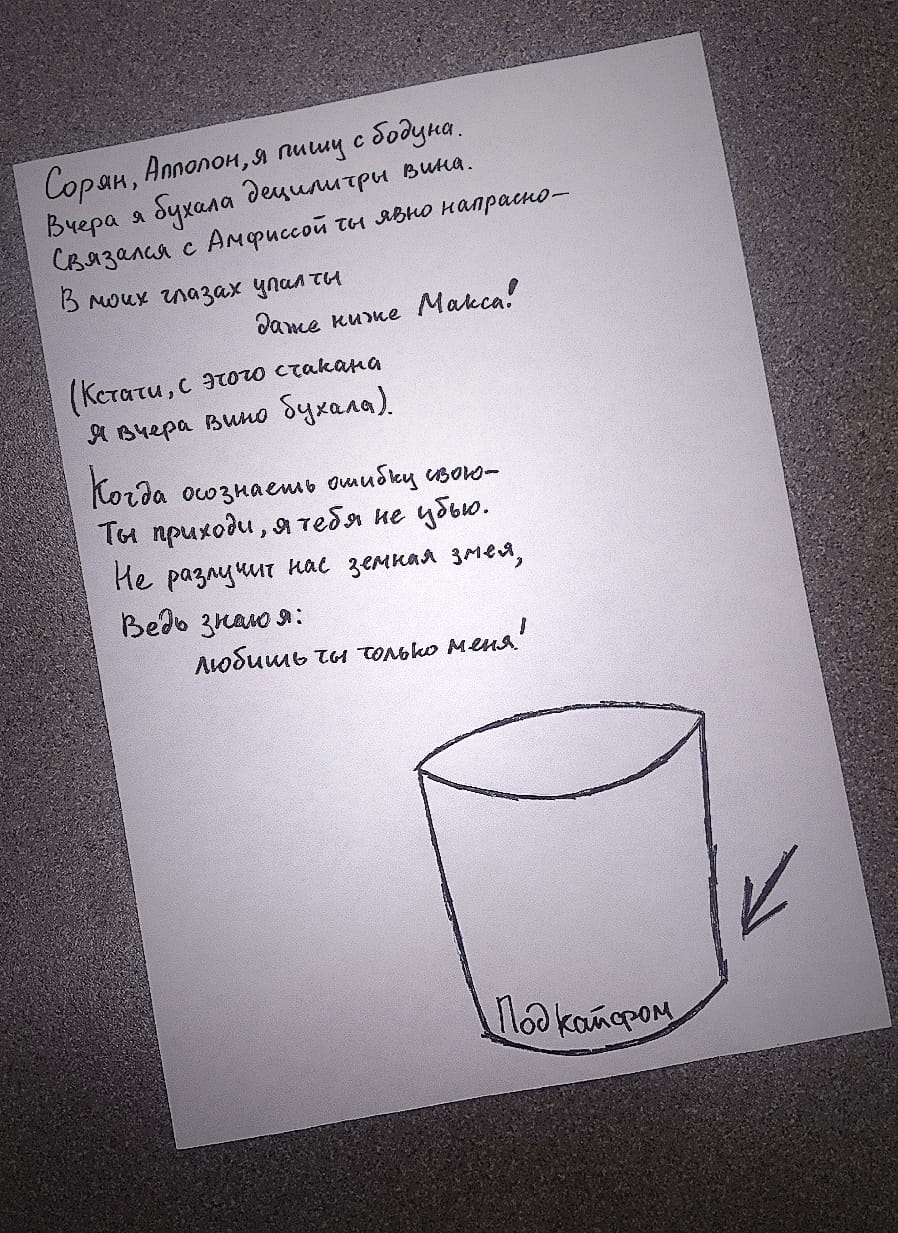 Сорян, Апполон, я пишу с бодуна.
Вчера я бухала децилитры вина.
Связался с Амфиссой ты явно напрасно–
В моих глазах упал ты
даже ниже Макса!
(Кстати, с этого стакана
я вчера вино бухала).
Когда осознаешь ошибку свою–
Ты приходи, я тебя не убью.
Не разлучит нас земная змея,
Ведь знаю я:
любишь ты только меня!
Под кайфом